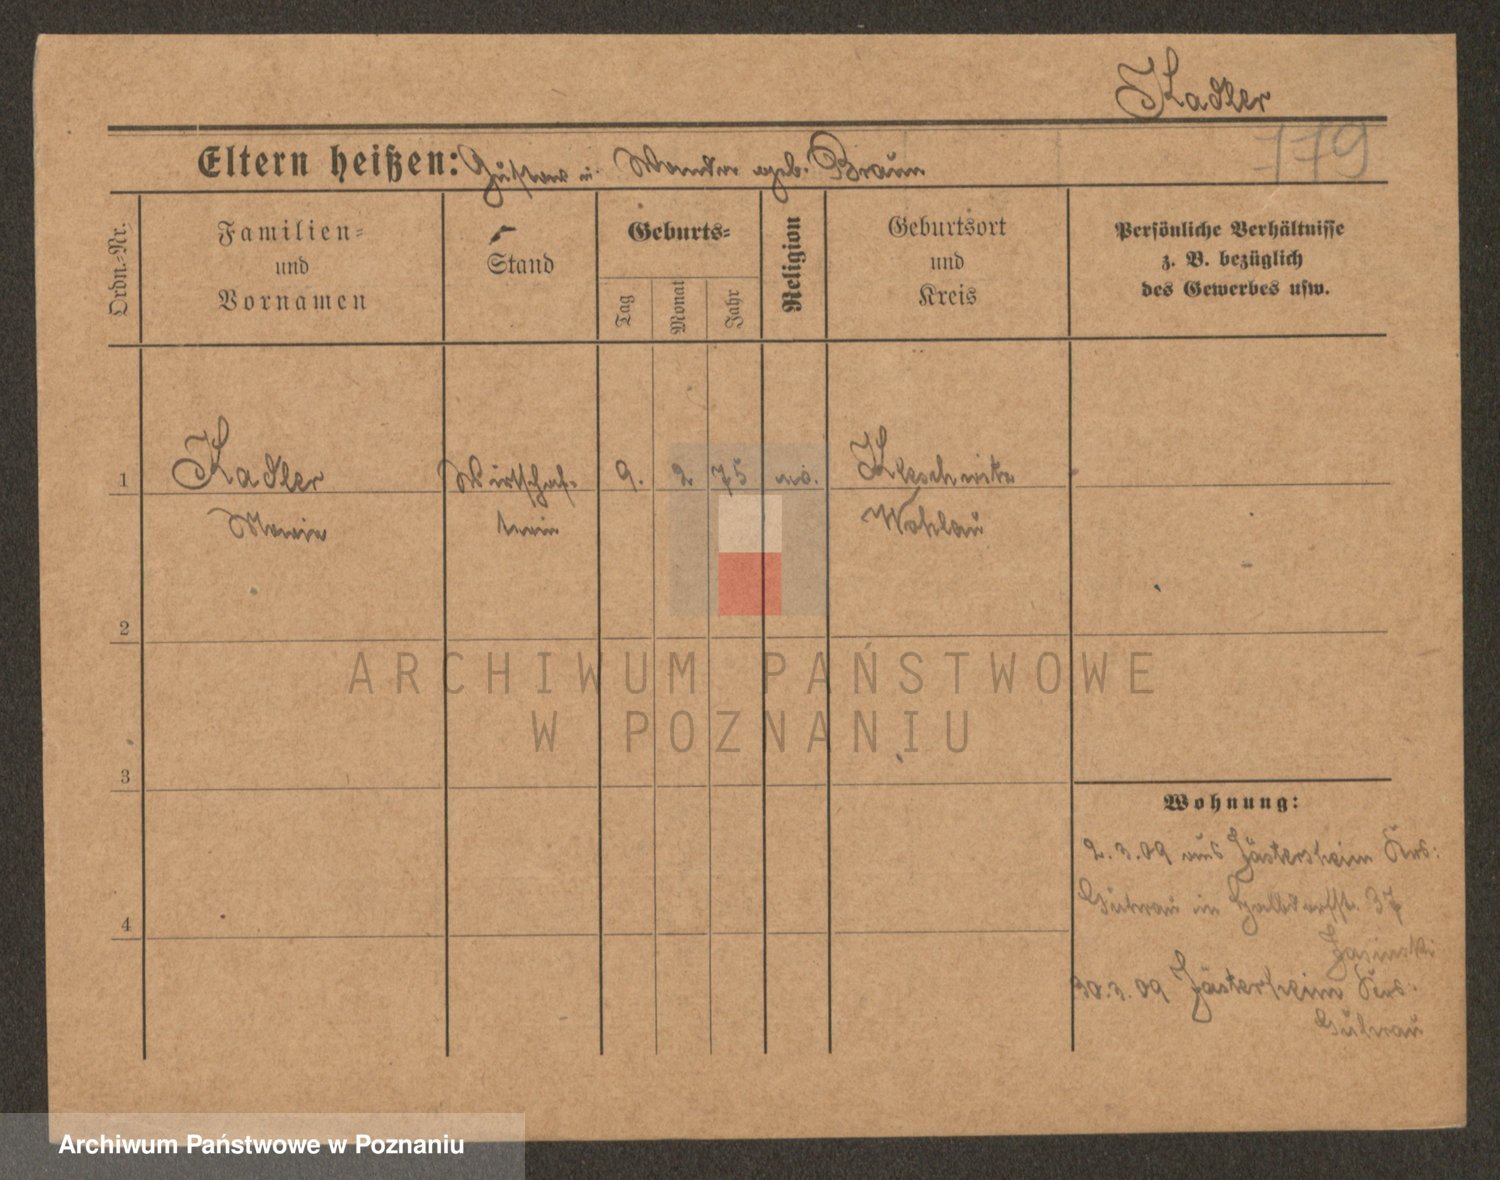 Kadler
179
Eltern heißen: Gustav u. Wanda geb. Braun
Ordn.-Nr.
Familien-
und
Vornamen
Stand
Geburts-
Tag
Monat
Jahr
Religion
Geburtsort
und
Kreis
Persönliche Verhältnisse
z. B. bezüglich
des Gewerbes usw.
1
Kadler
Maria
Wirtschaf-
terin
9. 2 75
Wohlau
2
3
4
ARCHIWUM PAŃSTWOWE
W POZNANIU
Wohnung:
2.3.09 aus Jästersheim Krs:
Guhrau in Halbdorfstr. 37
Jasinski
30.3.09 Jästersheim Krs.
Guhrau
Archiwum Państwowe w Poznaniu